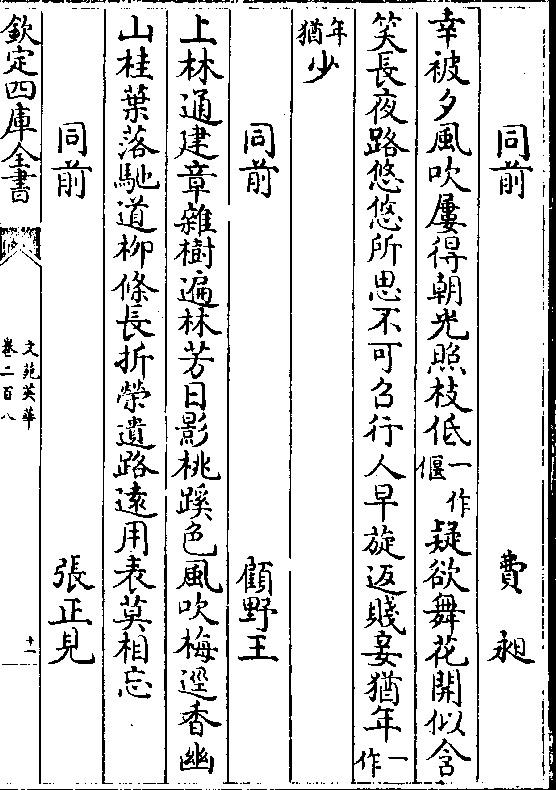 同前　費昶
幸被夕風吹屢得朝光照枝低一作偃疑欲舞花開似含
笑長夜路悠悠所思不可召行人早旋返賤妾猶年一作
年猶少
同前　顧野王
上林通建章雜樹遍林芳日影桃蹊色風吹梅逕香幽
山桂葉落馳道柳條長折榮遺路遠用表莫相忘
同前　張正見
欽定四庫全書
文苑英華
卷二百八
十一